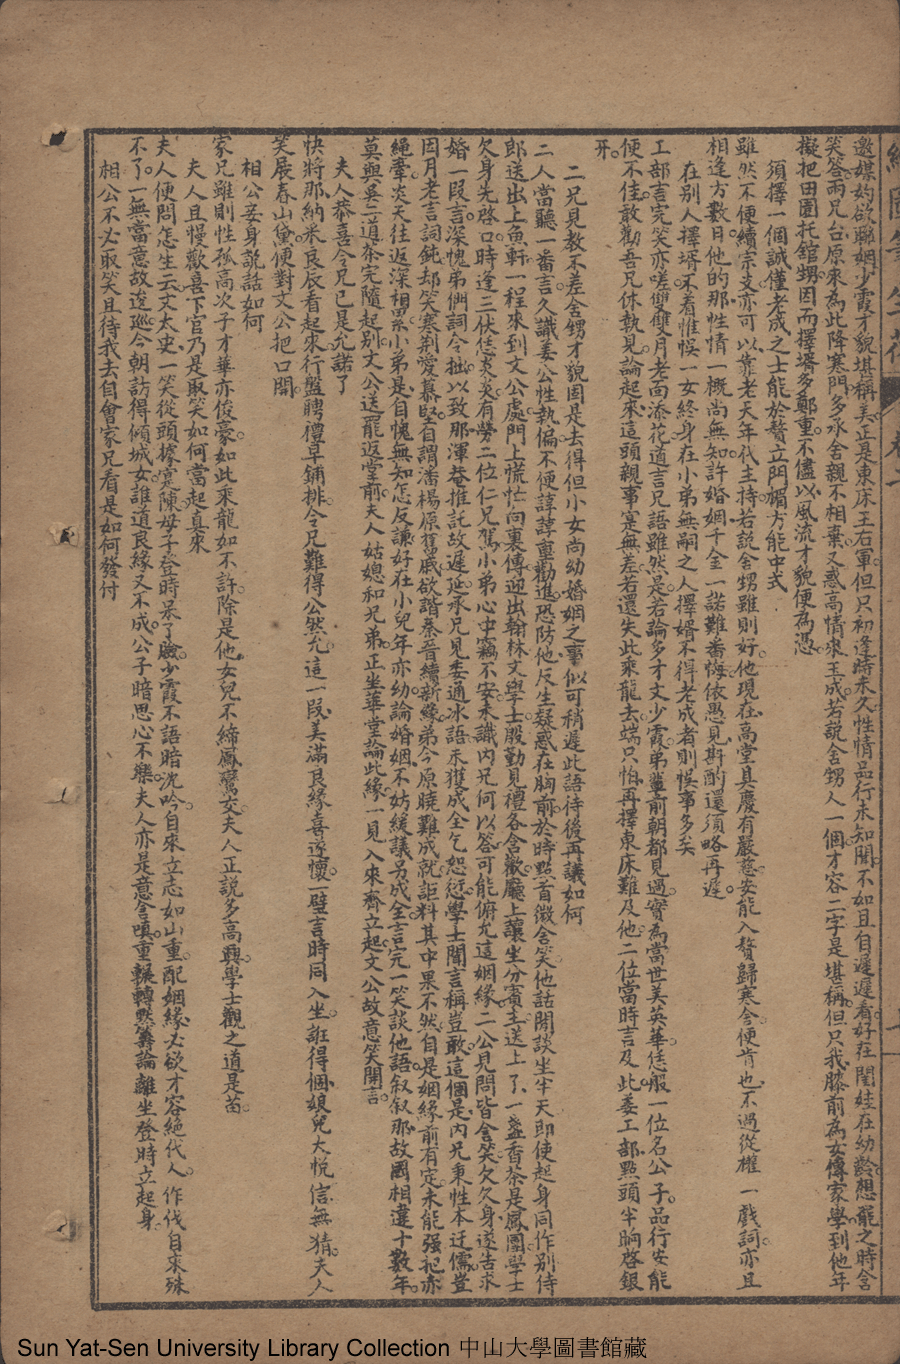 邀媒妁欲聯姻少霞才貌堪稱美正是東床王右軍但只初逢時未久性情品行未知聞不如且自遲遲看好在閨娃在幼齡想罷之時含
笑答兩兄台原來為此降寒門多承舍親不相棄又惑高情來玉成若説舍甥人一個才容二字是堪稱但只我膝前為女傳家學到他年
擬把田園托舘甥因而擇壻多鄭重不儘以風流才貌便為憑
須擇一個誠僅老成之士能於贅立門楣方能中式
雖然不便續宗支亦可以靠老天年代主持若説舍甥雖則好他現在高堂具慶有嚴慈安能入贅歸寒舍便肯也不過從權一戲詞亦且
相逢方數日他的那性情一概尚無知許婚姻千金一諾難番悔依愚見斟酌還須略再遲
在別人擇壻不着惟悮一女終身在小弟無嗣之人擇婿不得老成者則悮事多矣
工部言完笑亦嗟雙雙月老面添花道言兄語雖然是若論多才文少霞弟輩前朝都見過實為當世美英華恁般一位名公子品行安能
便不佳敢勸吾兄休執見論起來這頭親事寔無差若還失此乘龍去端只怕再擇東床難及他二位當時言及此姜工部點頭半晌啓銀
牙
二兄見教不差舍甥才貌固是去得但小女尚幼婚姻之事似可稍遲此語待後再議如何
二人當聽一番言久識姜公性執偏不便諄諄重勸進恐防他反生疑惑在胸前於時點首微含笑他話閒談坐半天即使起身同作別侍
郎送出上魚軒一程來到文公處門上慌忙向裏傳迎出翰林文學士殷勤見禮各含歡廳上讓坐分賓主送上了一盞香茶是鳳團學士
欠身先啓口時逢三伏恁炎炎有勞二位仁兄駕小弟心中竊不安未識內兄何以答可能俯允這姻緣二公見問皆含笑欠欠身遂告求
婚一段言深愧弟們詞令拙以致那渾菴推託故遲延承兄見委通冰語未獲成全乞恕愆學士聞言稱豈敢這個是內兄秉性本迂儒豈
因月老言詞鈍却笑寒荆愛慕堅自謂潘楊原舊戚欲諧秦晉續新緣弟今原曉難成就詎料其中果不然自是姻緣前有定未能强祀亦
繩牽炎天往返深相累小弟是自愧無知怎反謙好在小兒年亦幼論婚姻不妨緩議另成全言完一笑談他語叙叙那故園相違十數年
莫與吳二道茶完隨起別文公送罷返堂前夫人姑媳和兄弟正坐華堂論此緣一見入來齊立起文公故意笑開言
夫人恭喜令兄已是允諾了
快將那納采良辰看起來行盤聘禮早鋪排令兄難得公然允這一段美滿良緣喜遂懷一壁言時同入坐誑得個娘兒大悅信無猜夫人
笑展春山黛便對文公把口開
相公妾身説話如何
家兄雖則性孤高次子才華亦俊豪如此乘龍如不許除是他女兒不締鳳鸞交夫人正説多高興學士觀之道是茵
夫人且慢歡喜下官乃是取笑如何當起真來
夫人便問怎生云文太史一笑從頭據寔陳母子登時呆了臉少霞不語暗沈吟自來立志如山重配姻緣必欲才容絶代人作伐自來殊
不了一無當意故逡巡今朝訪得傾城女誰道良緣又不成公子暗思心不樂夫人亦是意含嗔重輾轉默籌論離坐登時立起身
相公不必取笑且待我去自會家兄看是如何發付
Sun Yat-Sen University Library Collection 中山大學圖書館藏